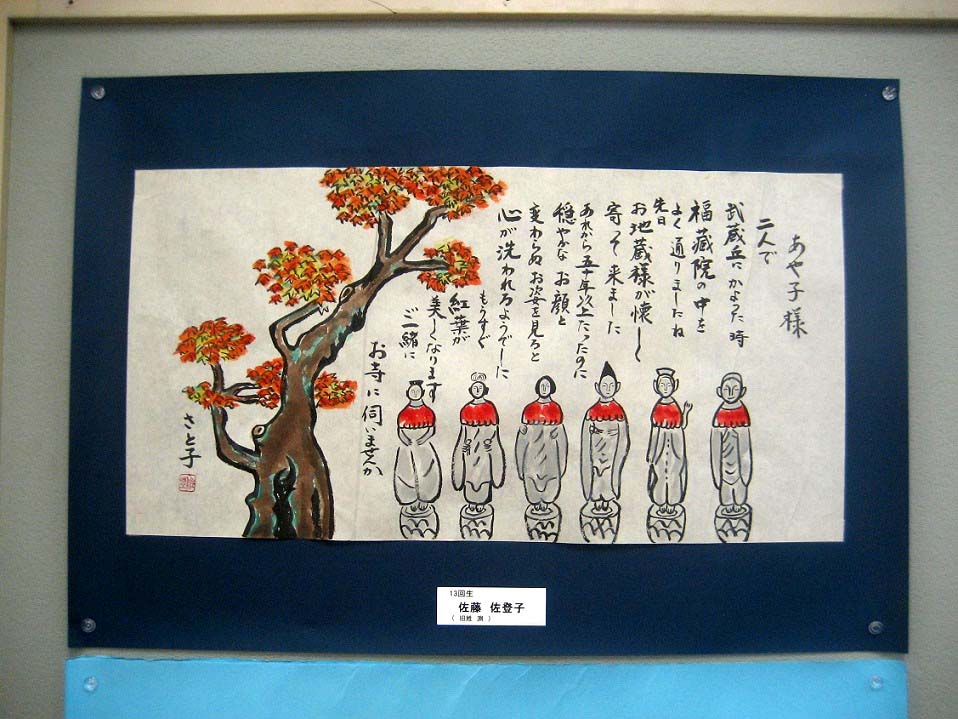 あや子様
二人で
武蔵丘にかよった時
福蔵院の中を
よく通りましたね
先日
お地蔵様が懐しく
寄って来ました
あれから五十年以上たったのに
穏やかな お顔と
変わらぬ お姿を見ると
心が洗われるようでした
もうすぐ
紅葉が
美しくなります
ご一緒に
お寺に伺いませんか
さと子
13回生
佐藤 佐登子
( 旧姓 測 )